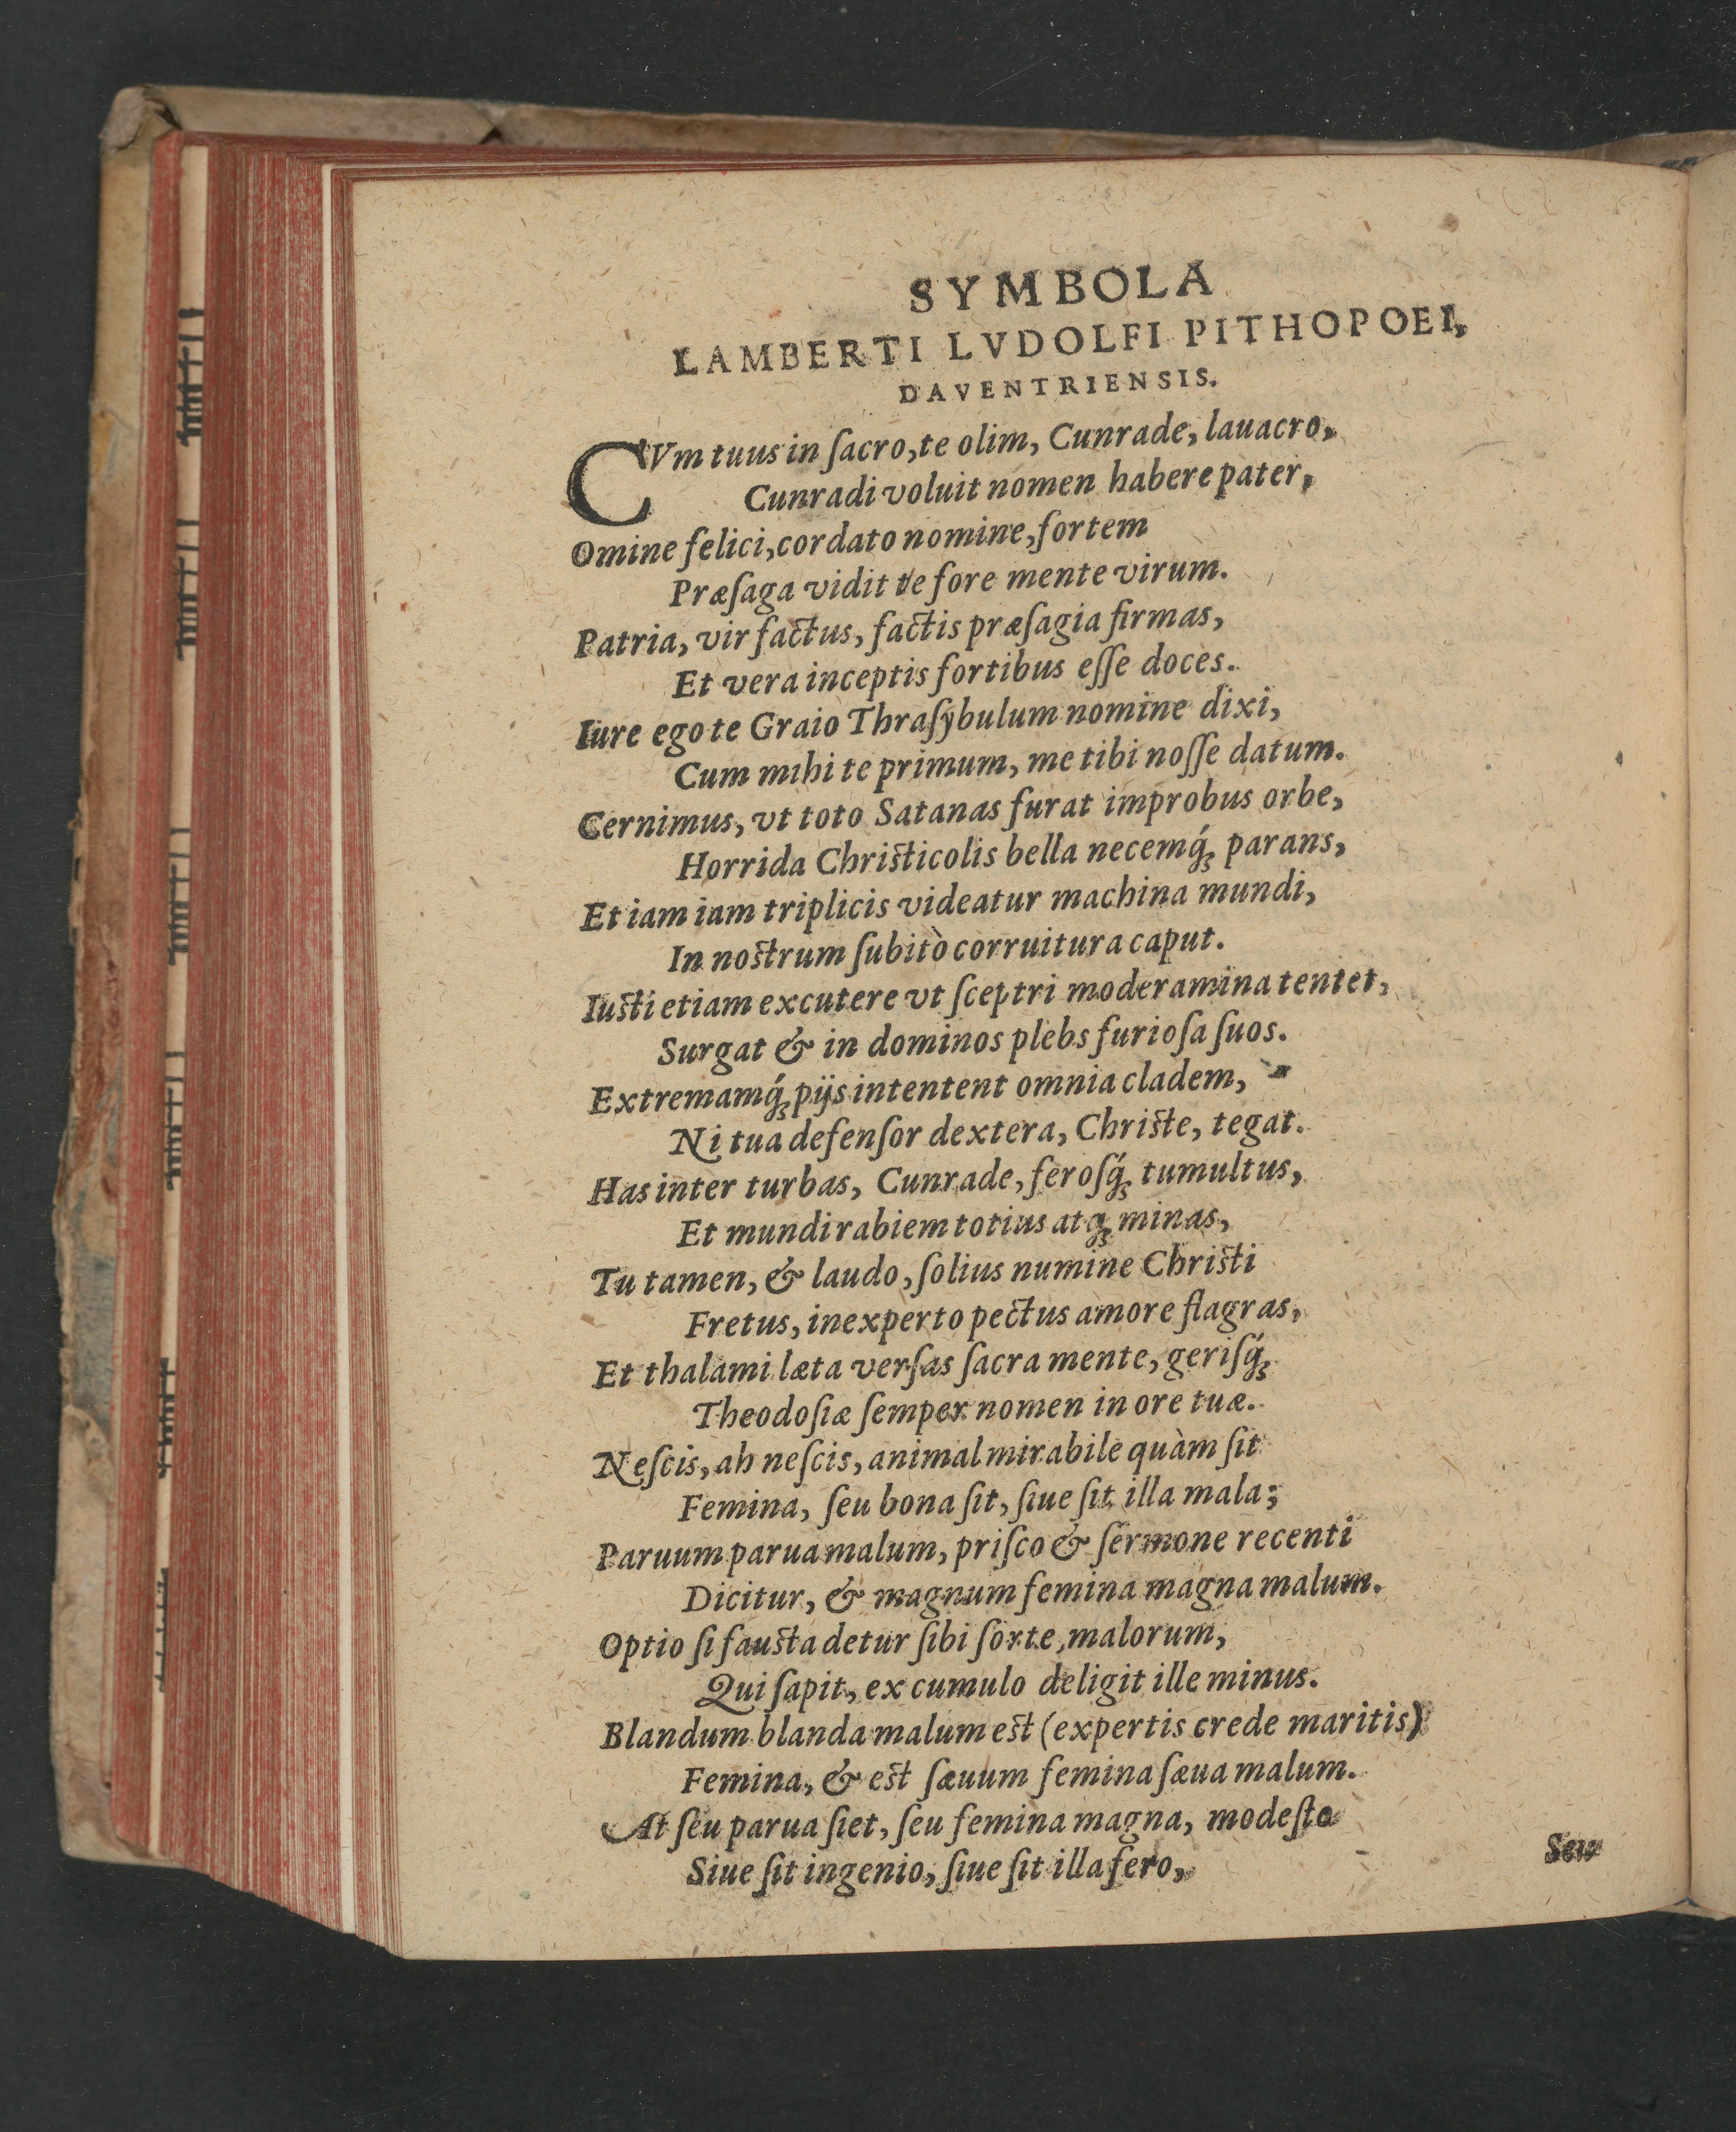 SYMBOLA
LAMBERTI LVDOLFI PITHOPOEI,
DAVENTRIENSIS.
CVm tuus in ſacro, te olim, Cunrade, lauacro,
Cunradi voluit nomen habere pater,
Omine felici, cordato nomine, fortem
Præſaga vidit te fore mente virum.
Patria, vir factus, factis præſagia firmas,
Et vera inceptis fortibus eſſe doces.
Iure ego te Graio Thraſybulum nomine dixi,
Cum mihi te primum, me tibi noſſe datum.
Cernimus, vt toto Satanas furat improbus orbe,
Horrida Chriſticolis bella necemq́ꝫ parans,
Et iam iam triplicis videatur machina mundi,
In noſtrum ſubitò corruitura caput.
Iuſti etiam excutere vt ſceptri moderamina tentet,
Surgat & in dominos plebs furioſa ſuos.
Extremamq́ꝫ pijs intentent omnia cladem,
Ni tua defenſor dextera, Chriſte, tegat.
Has inter turbas, Cunrade, feroſq́ꝫ tumultus,
Et mundi rabiem totius atqꝫ minas,
Tu tamen, & laudo, ſolius numine Chriſti
Fretus, inexperto pectus amore flagras,
Et thalami læta verſas ſacra mente, geriſq́ꝫ
Theodoſiæ ſemper nomen in ore tuæ.
Neſcis, ah neſcis, animal mirabile quàm ſit
Femina, ſeu bona ſit, ſiue ſit illa mala;
Paruum parua malum, priſco & ſermone recenti
Dicitur, & magnum femina magna malum.
Optio ſi fauſta detur ſibi ſorte, malorum,
Qui ſapit, ex cumulo deligit ille minus.
Blandum blanda malum eſt (expertis crede maritis)
Femina, & eſt ſæuum femina ſæua malum.
At ſeu parua ſiet, ſeu femina magna, modeſto
Siue ſit ingenio, ſiue ſit illa fero,
Seu